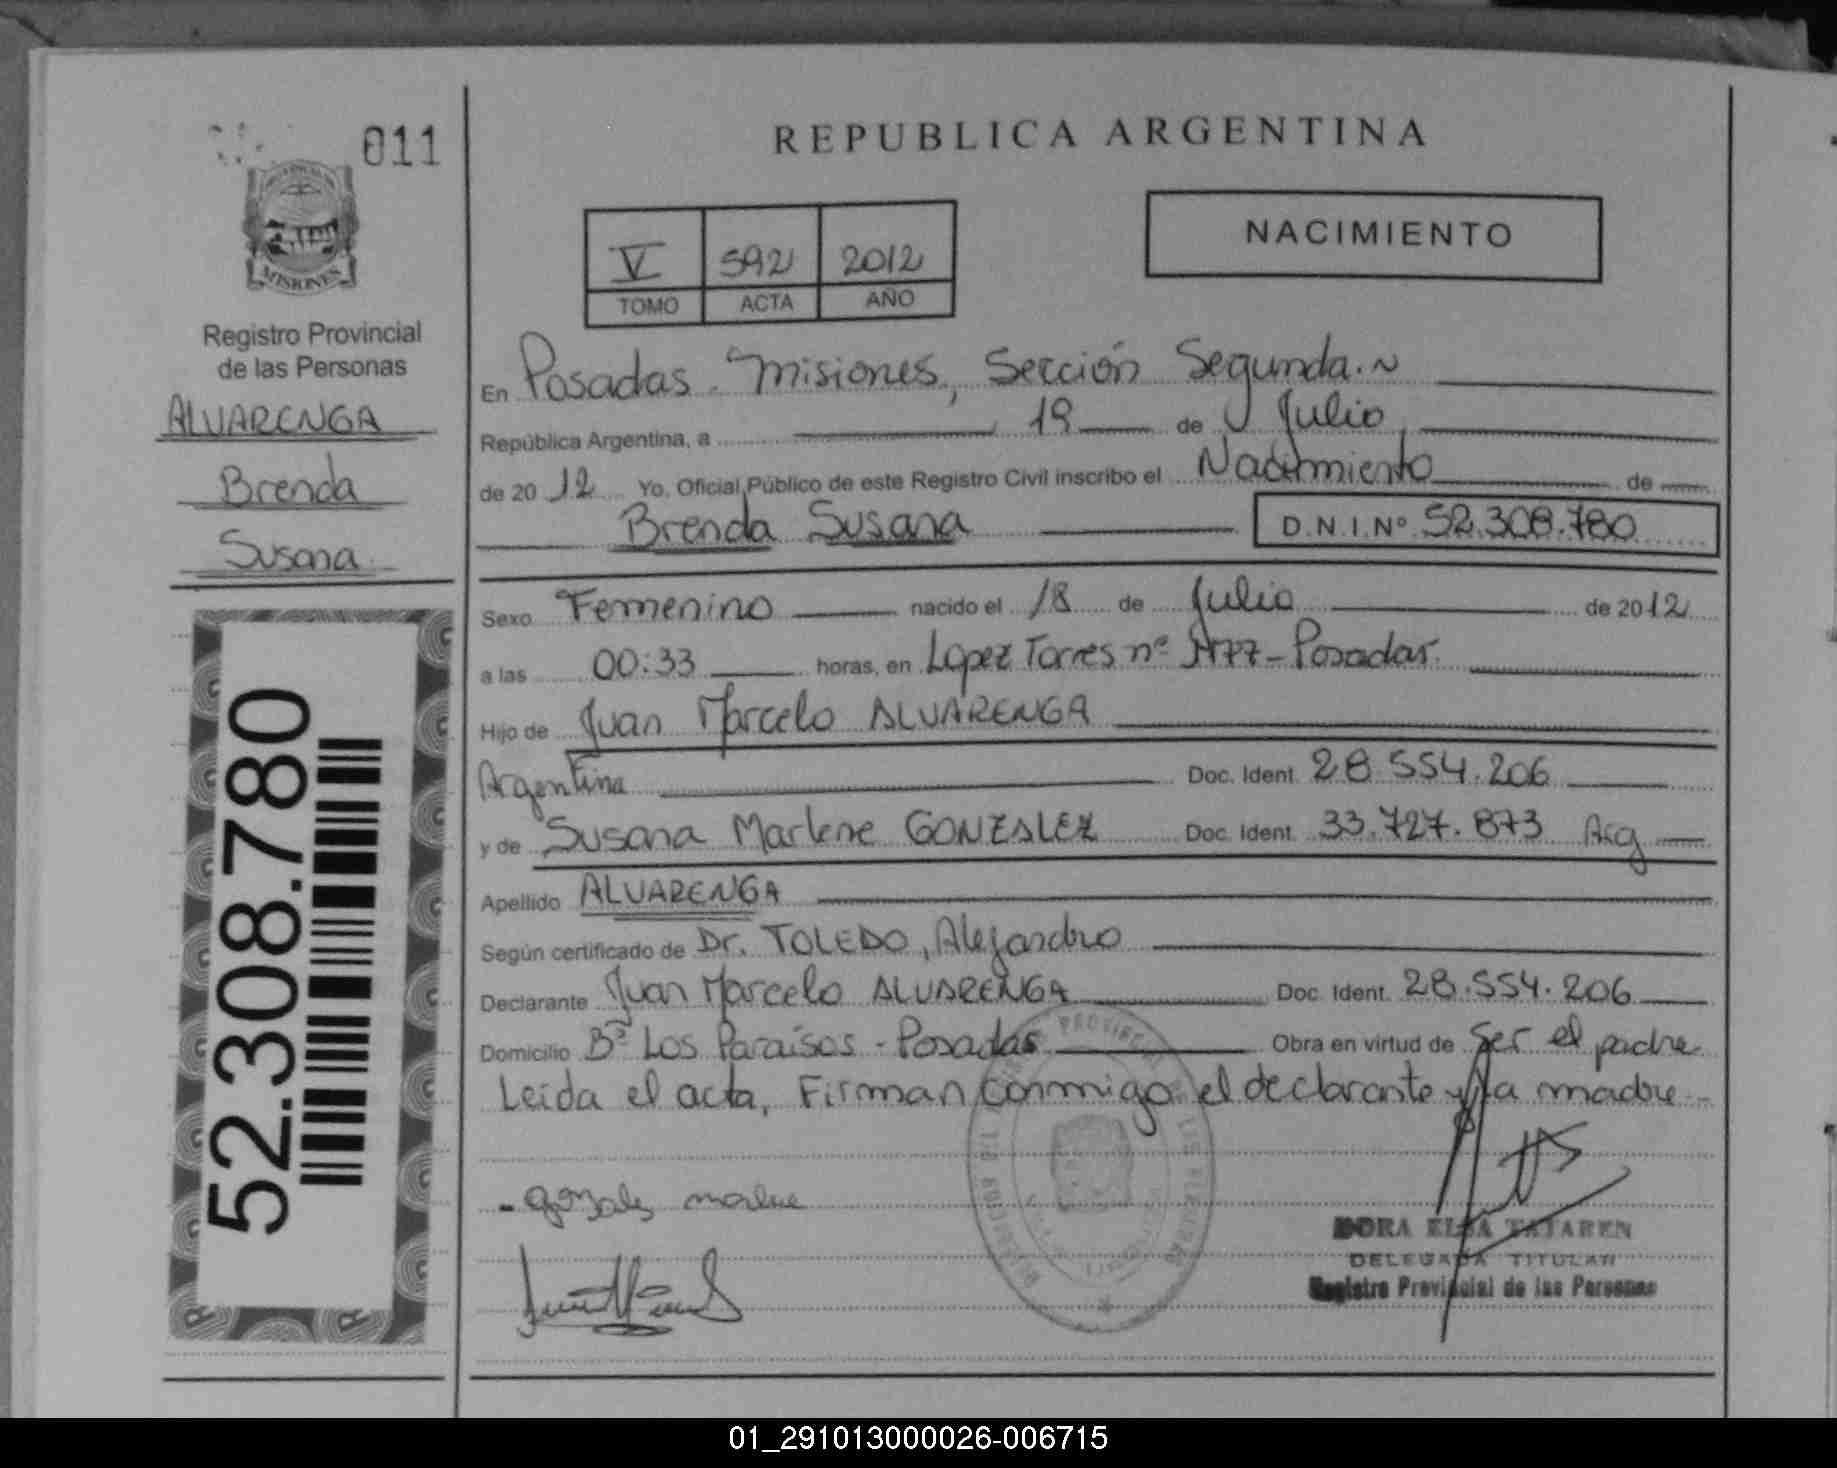 011
MISIONES
Registro Provincial
de las Personas
ALVARENGA
Brenda
Susana
52.308.780
REPUBLICA ARGENTINA
V 592 2012
TOMO ACTA AÑO
NACIMIENTO
En Posadas - Misiones, Sección Segunda.~
República Argentina, a 19 de Julio
de 2012 Yo, Oficial Público de este Registro Civil inscribo el Nacimiento de
Brenda Susana D.N.I.Nº 52.308.780
Sexo Femenino nacido el 18 de Julio de 2012
a las 00:33 horas, en Lopez Torres nº 1177 - Posadas.
Hijo de Juan Marcelo ALVARENGA
Argentina Doc. Ident. 28.554.206
y de Susana Marlene GONZALEZ Doc. Ident. 33.727.873 Arg
Apellido ALVARENGA
Según certificado de Dr. TOLEDO, Alejandro
Declarante Juan Marcelo ALVARENGA Doc. Ident. 28.554.206
Domicilio Bº Los Paraísos - Posadas Obra en virtud de Ser el padre
Leída el acta, Firman conmigo el declarante y la madre -
- gonzalez marlene
DORA ELSA TATAREN
DELEGADA TITULAR
Registro Provincial de las Personas
01_291013000026-006715